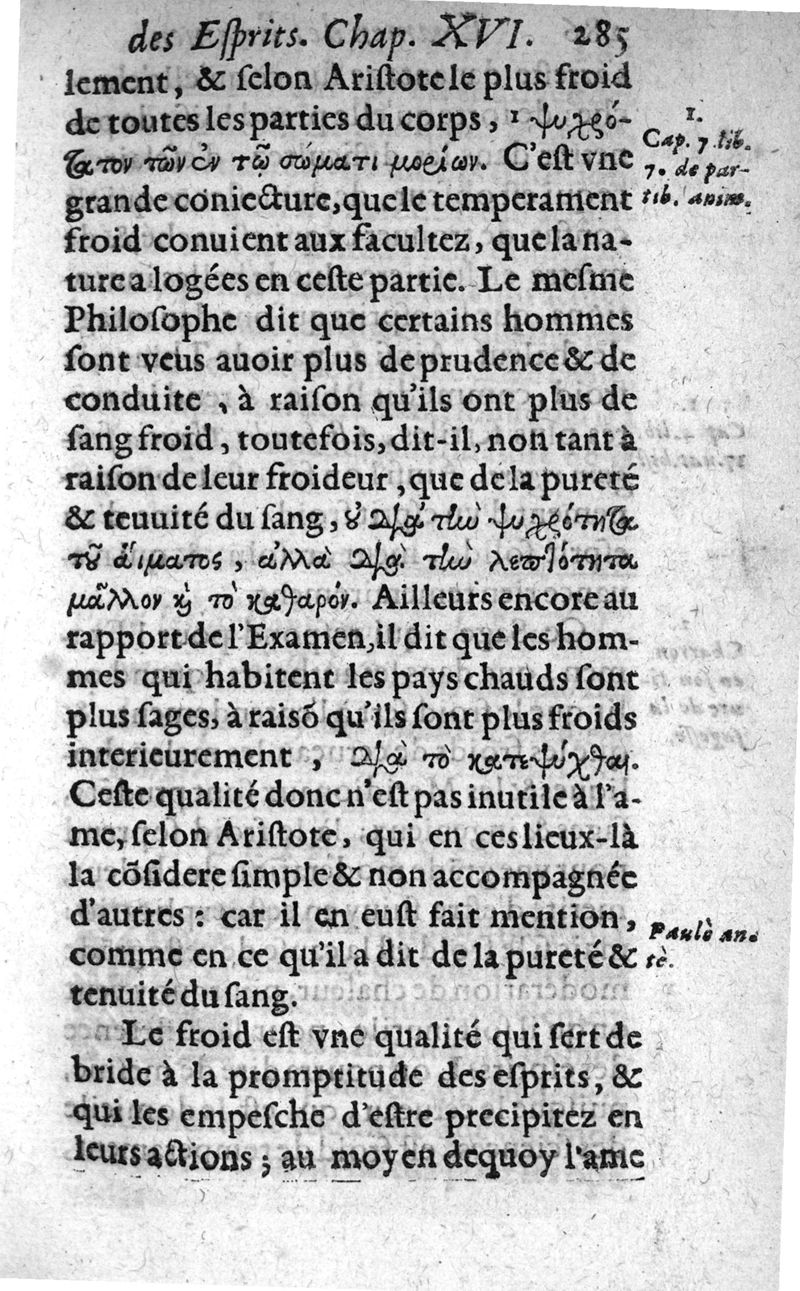 des Eſprits. Chap. XVI. 285
lement, & ſelon Ariſtote le plus froid
de toutes les parties du corps, 1 ψυχρό-
τατον τῶν ἐν τῷ σώματι μορίων. C'eſt vne
grande coniecture, que le temperament
froid conuient aux facultez, que la na-
ture a logées en ceſte partie. Le meſme
Philoſophe dit que certains hommes
ſont veus auoir plus de prudence & de
conduite , à raiſon qu'ils ont plus de
ſang froid, toutefois, dit-il, non tant à
raiſon de leur froideur, que de la pureté
& teuuité du ſang, οὐ διὰ τὴν ψυχρότητα
τοῦ αἵματος, ἀλλὰ διὰ τὴν λεπτότητα
μᾶλλον καὶ τὸ καθαρόν. Ailleurs encore au
rapport de l'Examen, il dit que les hom-
mes qui habitent les pays chauds ſont
plus ſages, à raisõ qu'ils ſont plus froids
interieurement , διὰ τὸ κατεψύχθαι.
Ceſte qualité donc n'eſt pas inutile à l'a-
me, ſelon Ariſtote, qui en ces lieux-là
la cõſidere ſimple & non accompagnée
d'autres : car il en euſt fait mention,
comme en ce qu'il a dit de la pureté &
tenuité du ſang.
Le froid eſt vne qualité qui ſert de
bride à la promptitude des eſprits, &
qui les empeſche d'eſtre precipitez en
leurs actions ; au moyen dequoy l'ame
1.
Cap. 7 lib.
7. de par-
tib. anim.
Paulò an-
tè.